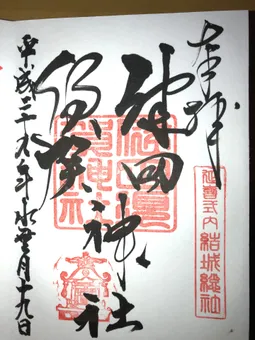 奉拝
延喜式内 結城總社
健田
須賀
神社
平成二十九年水無月十九日